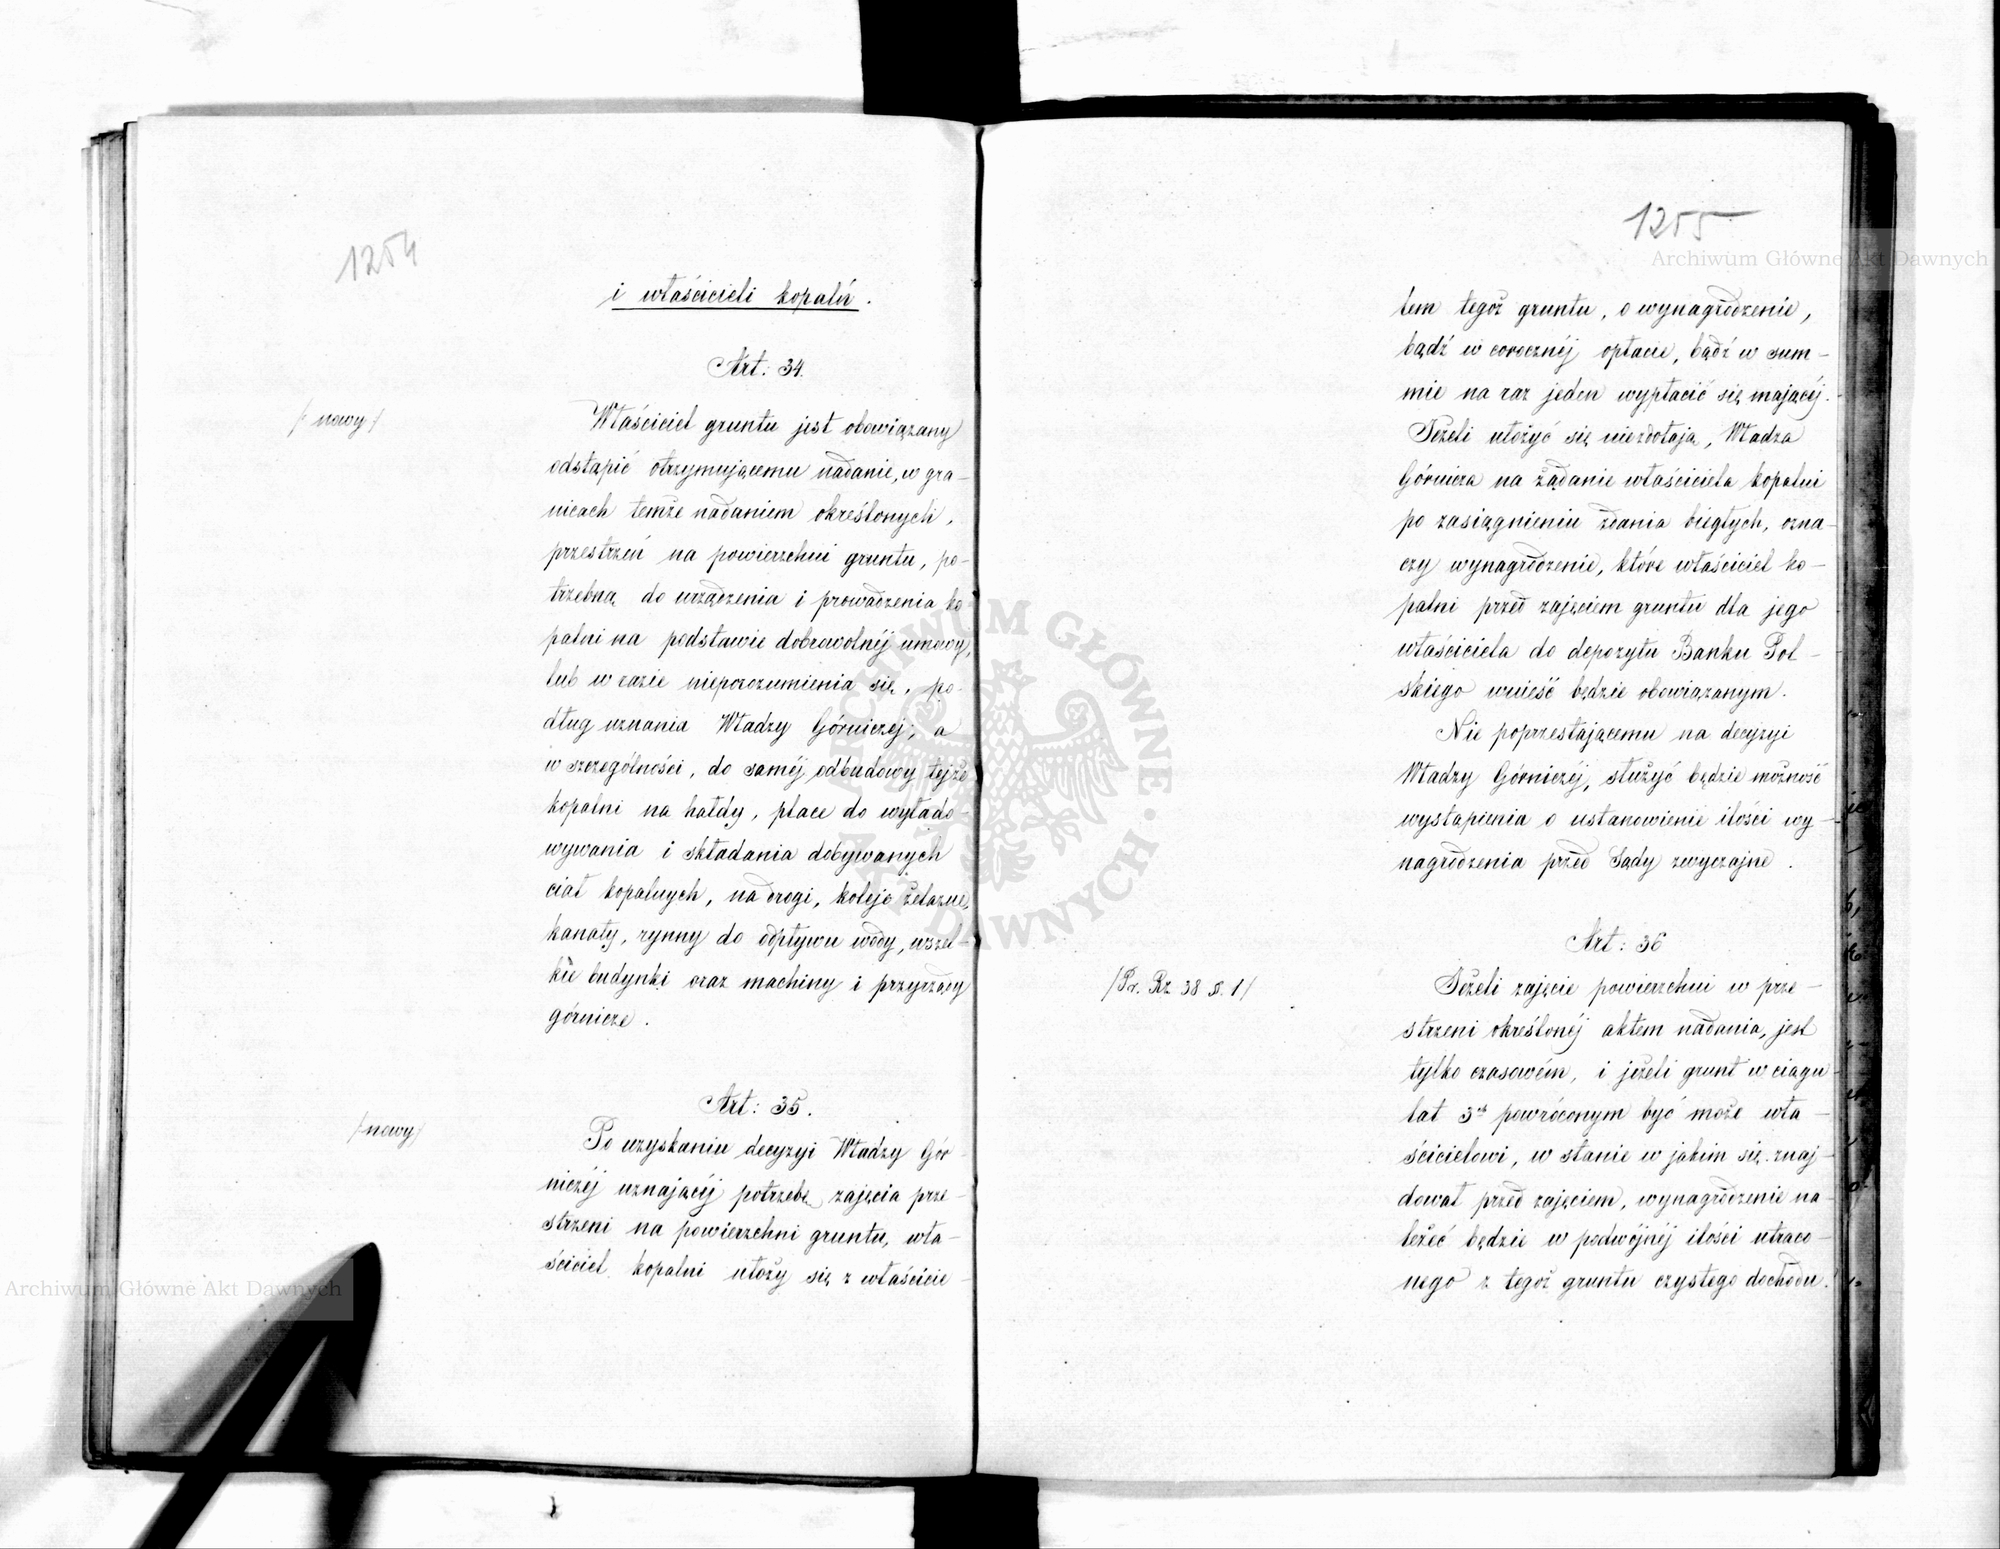 1254
i właścicieli kopalń.
Art: 34.
/nowy/
Właściciel gruntu jest obowiązany
odstąpić otrzymującemu nadanie, w gra-
nicach temże nadaniem określonych,
przestrzeń na powierzchni gruntu, po-
trzebną do urządzenia i prowadzenia ko
palni na podstawie dobrowolnéj umowy,
lub w razie nieporozumienia się, po-
dług uznania Władzy Górniczej; a
w szczególności, do saméj odbudowy tejże
kopalni na hałdy, place do wyłado-
wywania i składania dobywanych
ciał kopalnych, na drogi, koleje żelazne,
kanały, rynny do odpływu wody, wszel-
kie budynki oraz machiny i przyrządy
górnicze.
Art: 35.
/nowy/
Po uzyskaniu decyzyi Władzy Gór-
niczéj uznającéj potrzebę zajęcia prze-
strzeni na powierzchni gruntu, wła-
ściciel kopalni ułoży się z właścicie-
1255
lem tegoż gruntu, o wynagrodzenie,
bądź w corocznéj opłacie, bądź w sum-
mie na raz jeden wypłacić się mającéj.
Jeżeli ułożyć się niezdołają, Władza
Górnicza na żądanie właściciela kopalni
po zasiągnieniu zdania biegłych, ozna-
czy wynagrodzenie, które właściciel ko-
palni przed zajęciem gruntu dla jego
właściciela do depozytu Banku Pol-
skiego wnieść będzie obowiązanym.
Nie poprzestającemu na decyzyi
Władzy Górniczéj, służyć będzie możność
wystąpienia o ustanowienie ilości wy-
nagrodzenia przed Sądy zwyczajne.
Art: 36
/Pr. Rz. 38 p. 1/
Jeżeli zajęcie powierzchni w prze-
strzeni określonéj aktem nadania, jest
tylko czasowém, i jeżeli grunt w ciągu
lat 3ch powróconym być może wła-
ścicielowi, w stanie w jakim się znaj-
dował przed zajęciem, wynagrodzenie na-
leżeć będzie w podwójnéj ilości utraco-
nego z tegoż gruntu czystego dochodu.
Archiwum Główne Akt Dawnych
Archiwum Główne Akt Dawnych
ARCHIWUM GŁÓWNE AKT DAWNYCH